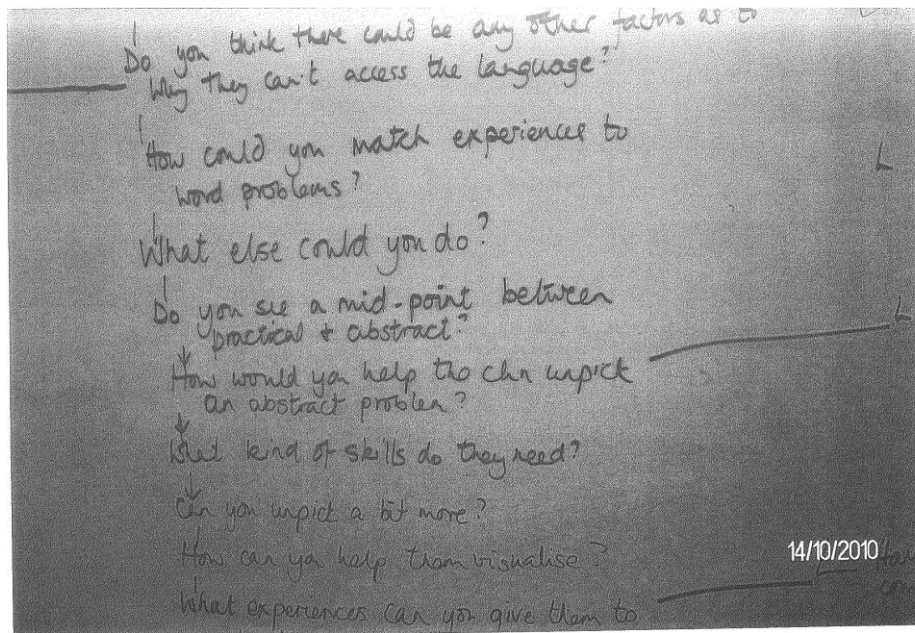 Do you think there could be any other factors as to
why they can't access the language?
How could you match experiences to
word problems?
What else could you do?
Do you see a mid-point between
practical + abstract?
How would you help the chn unpick
an abstract problem?
What kind of skills do they need?
Can you unpick a bit more?
How can you help them visualise?
14/10/2010
What experiences can you give them to
L
L
L